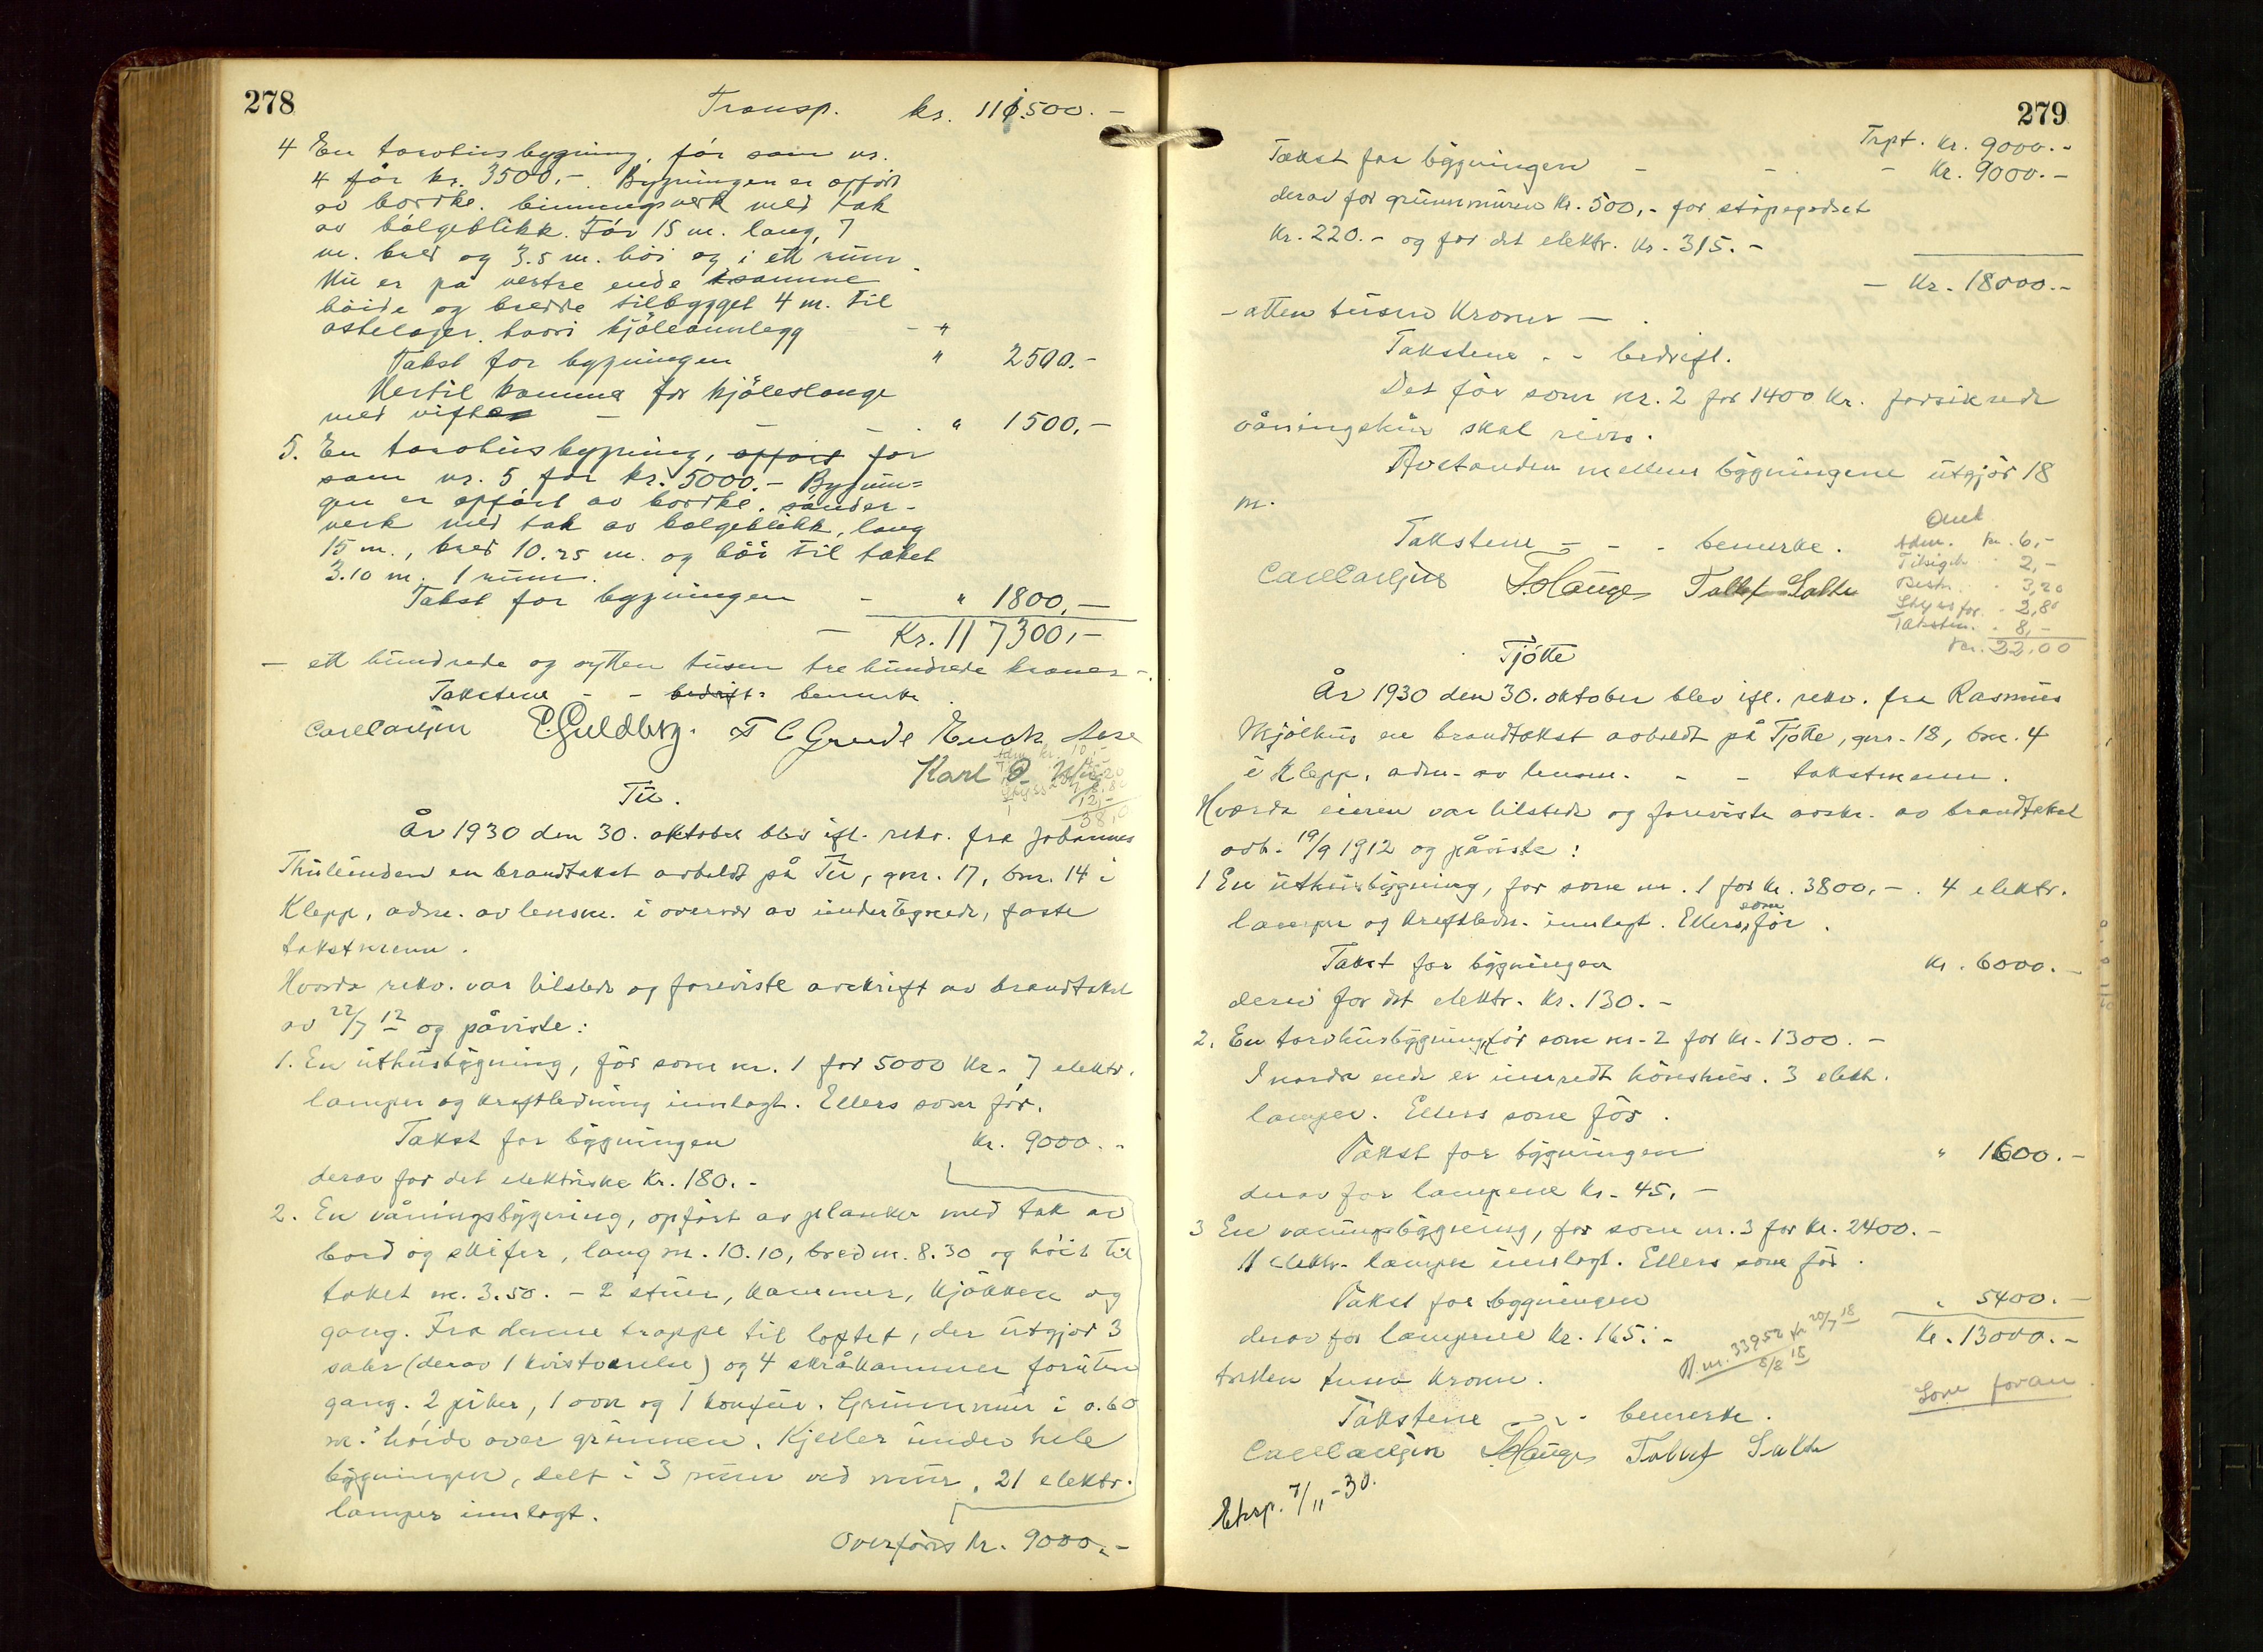 278
Transp. kr. 111.500.-
4 En torvhusbygning, før som nr.
4 før kr. 3500,-. Bygningen er opført
av bordkl. binningsverk med tak
av bølgeblikk. Før 15 m. lang, 7
m. bred og 3.5 m. høi og i ett rum.
Nu er på vestre ende samme
høide og bredde tilbygget 4 m. til
ostelager, hvori kjøleannlegg - "
Takst for bygningen " 2500.-
Hertil komma for kjøleslange
med vifte - - - " 1500,-
5. En torvhusbygning, opført før
som nr. 5 for kr. 5000.- Bygnin=
gen er opført av bordkl. sønder-
verk med tak av bølgeblikk, lang
15 m., bred 10.25 m. og høi til taket
3.10 m. 1 rum.
Takst for bygningen - " 1800,-
- Kr. 117300,-
- ett hundrede og sytten tusen tre hundrede kroner -.
Takstene - - bedrift: bemerke.
Carl Carlsen E. Guldberg. T C Grude Enok
Karl
Tu.
År 1930 den 30. oktober blev ifl. rekv. fra Johannes
Thulinden en brandtakst avholdt på Tu, gnr. 17, bnr. 14 i
Klepp, adm. av lensm. i overvær av undertegnede, faste
takstmenn.
Hvorda rekv. var tilstede og foreviste avskrift av brandtakst
av 22/7 12 og påviste:
1. En uthusbygning, før som nr. 1 for 5000 kr. 7 elektr.
lamper og kraftledning innlagt. Ellers som før.
Takst for bygningen kr. 9000.-
derav for det elektriske kr. 180.-
2. En våningsbygning, opført av planker med tak av
bord og skifer, lang m. 10.10, bred m. 8.30 og høit til
taket m. 3.50. - 2 stuer, kammer, kjøkken og
gang. Fra denne trappe til loftet, der utgjør 3
saler (derav 1 kvistværelse) og 4 skråkammer foruten
gang. 2 piber, 1 ovn og 1 komfur. Grunnmur i 0.60
m. høide over grunnen. Kjeller under hele
bygningen, delt i 3 rum ved mur. 21 elektr.
lamper innlagt.
Overføres kr. 9000.-
279
Trpt. kr. 9000.-
Takst for bygningen - - - kr. 9000.-
derav for grunnmuren kr. 500,- for støpegodset
kr. 220.- og for det elektr. kr. 315.-
- kr. 18000.-
- atten tusen kroner -.
Takstene - - bedrift.
Det før som nr. 2 for 1400 kr. forsikrede
våningshus skal rives.
Avstanden mellem bygningene utgjør 18
m.
Takstene - - - bemerke.
Adm. kr. 6,-
Tilsigh. 2,-
Besk. " 3,20
Skyss for. " 2,80
Taksten. " 8,-
Kr. 22,00
Carl Carlsen T. Hauge Tollef Salte
Tjøtte
År 1930 den 30. oktober blev ifl. rekv. fra Rasmus
Mjølhus en brandtakst avholdt på Tjøtte, gnr. 18, bnr. 4
i Klepp, adm. av lensm. - - takstmenn.
Hvorda eieren var tilstede og foreviste avskr. av brandtakst
avh. 19/9 1912 og påviste:
1 En uthusbygning, før som nr. 1 for kr. 3800,-. 4 elektr.
lamper og kraftledn. innlagt. Ellers som før.
Takst for bygningen kr. 6000.-
derav for det elektr. kr. 130.-
2. En torvhusbygning, før som nr. 2 for kr. 1300.-
I nordre ende er innredt hønshus. 3 elektr.
lamper. Ellers som før.
Takst for bygningen " 1600.-
derav for lampene kr. 45,-
3 En våningsbygning, før som nr. 3 for kr. 2400.-
11 elektr. lamper innlagt. Ellers som før.
Takst for bygningen " 5400.-
derav for lampene kr. 165.- kr. 13000.-
tretten tusen kroner.
P. nr. 33952 fr. 20/7 18
5/8 18
Som foran
Takstene - - - bemerke.
Carl Carlsen T Hauge Tollef Salte
Eksp. 7/11-30.